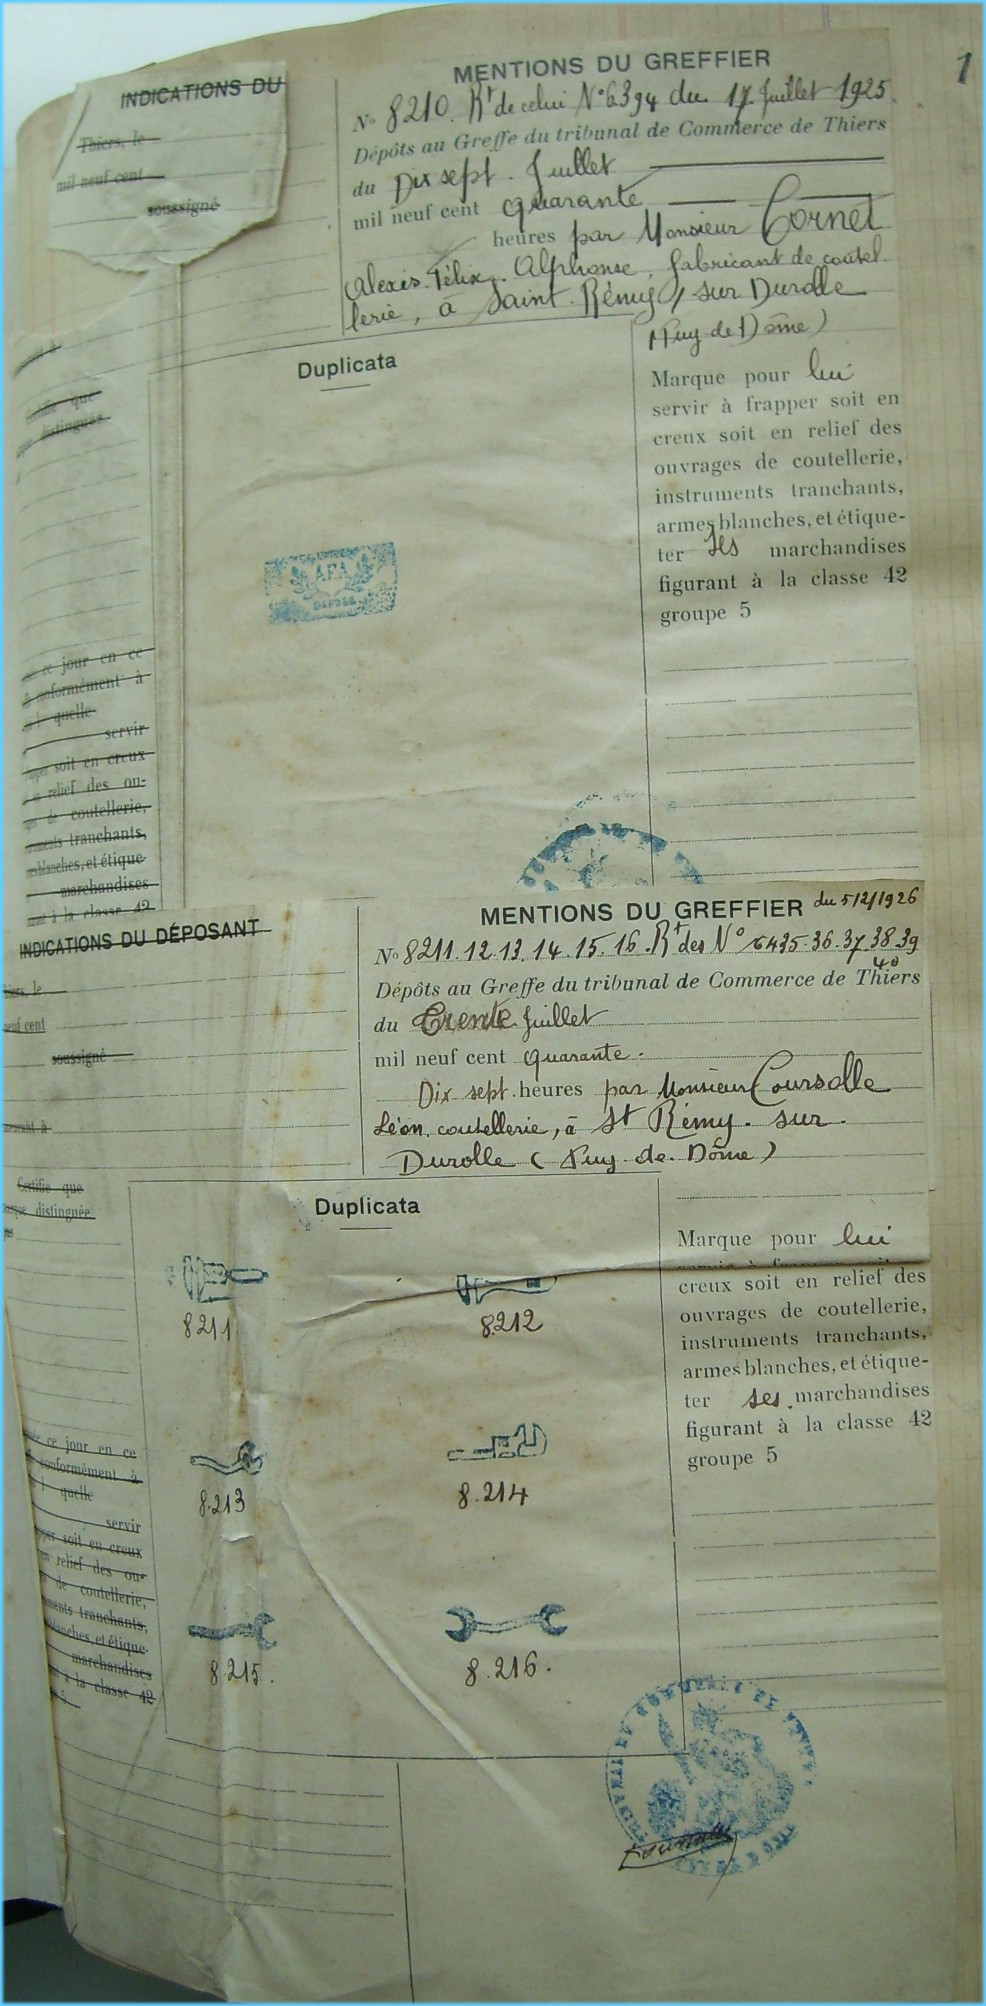 1
INDICATIONS DU
Thiers, le
mil neuf cent
soussigné
MENTIONS DU GREFFIER
No 8210. Rt de celui No 6394 du 17 Juillet 1925.
Dépôts au Greffe du tribunal de Commerce de Thiers
du Dix sept. Juillet
mil neuf cent quarante
heures par Monsieur Cornet
Alexis. Félix. Alphonse, fabricant de coutel
lerie, à Saint. Rémy s/ sur Durolle
(Puy de Dôme)
que
distinguée
ce jour en ce
conformément à
quelle
servir
soit en creux
relief des ou-
de coutellerie,
tranchants,
blanches, et étique-
marchandises
à la classe 42
Duplicata
AFA
DÉPOSÉ
Marque pour lui
servir à frapper soit en
creux soit en relief des
ouvrages de coutellerie,
instruments tranchants,
armes blanches, et étique-
ter ses marchandises
figurant à la classe 42
groupe 5
INDICATIONS DU DÉPOSANT
le
neuf cent
soussigné
à
MENTIONS DU GREFFIER du 5/2/1926
No 8211.12.13.14.15.16. Rt des No 6435.36.37.38.39
40
Dépôts au Greffe du tribunal de Commerce de Thiers
du Trente Juillet
mil neuf cent quarante.
Dix sept. heures par Monsieur Coursolle
Léon, coutellerie, à St Rémy. sur.
Durolle (Puy. de. Dôme)
Certifie que
distinguée
ce jour en ce
conformément à
quelle
servir
soit en creux
relief des ou-
de coutellerie,
tranchants,
blanches, et étique-
marchandises
à la classe 42
Duplicata
8211
8212
8.213
8.214
8.215.
8.216.
Marque pour lui
creux soit en relief des
ouvrages de coutellerie,
instruments tranchants,
armes blanches, et étique-
ter ses. marchandises
figurant à la classe 42
groupe 5
TRIBUNAL DE COMMERCE DE